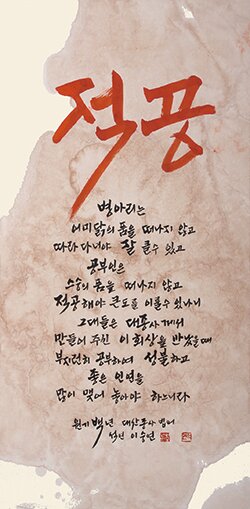 적공
병아리는
어미닭의 품을 떠나지 않고
따라 다녀야 잘 클 수 있고
공부인은
스승의 품을 떠나지 않고
적공해야 큰 도를 이룰 수 있나니
그대들은 대종사께서
만들어 주신 이 회상을 만났을 때
부지런히 공부하여 성불하고
좋은 인연을
많이 맺어 놓아야 하느니라
원기백년 대산종사 법어
이승연